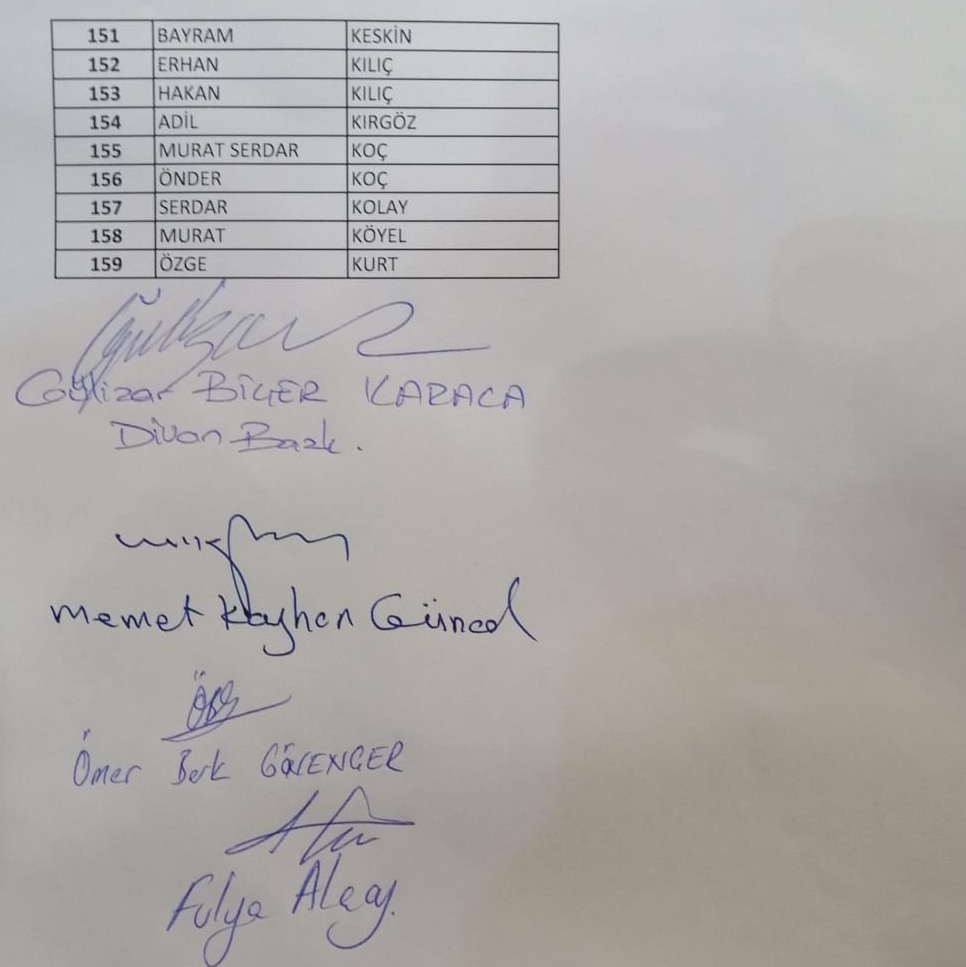 151 BAYRAM KESKİN
152 ERHAN KILIÇ
153 HAKAN KILIÇ
154 ADİL KIRGÖZ
155 MURAT SERDAR KOÇ
156 ÖNDER KOÇ
157 SERDAR KOLAY
158 MURAT KÖYEL
159 ÖZGE KURT
Gülizar BİÇER KARACA
Divan Başk.
Memet Kayhan Güncel
Ömer Berk GÜVENGER
Fulya Alçay